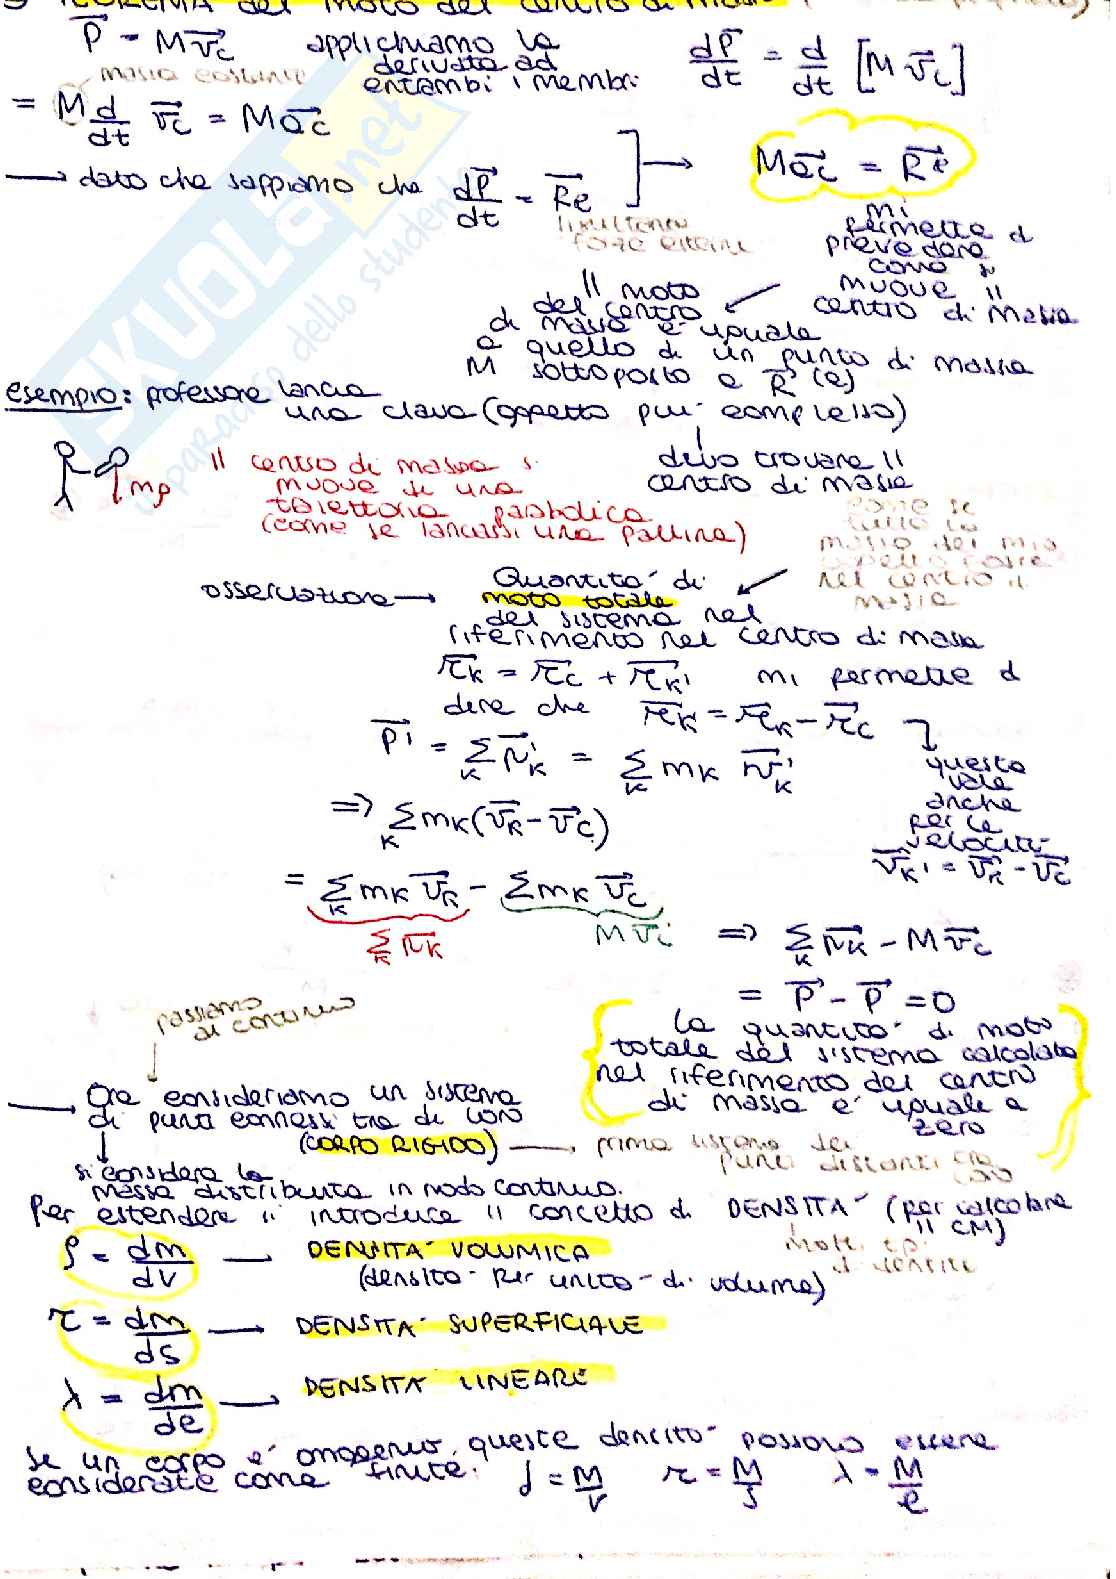 TEOREMA del moto del centro di massa
P = M vc applichiamo la derivata ad entrambi i membri dP/dt = d/dt [M vc]
massa costante
= M d/dt vc = M ac
→ dato che sappiamo che dP/dt = Re ] → M ac = Re
risultante forze esterne
mi permette di prevedere come si muove il centro di massa
Il moto del centro di massa e' uguale a quello di un punto di massa M sottoposto a R(e)
esempio: professore lancia una clava (oggetto piu' complesso)
devo trovare il centro di massa
mg
il centro di massa si muove di una traiettoria parabolica (come se lanciassi una pallina)
come se tutta la massa del mio oggetto fosse nel centro di massa
osservazione → Quantita' di moto totale del sistema nel riferimento nel centro di massa
rk = rc + rk' mi permette di dire che rk' = rk - rc
questo vale anche per le velocita'
vk' = vk - vc
P' = Σk pk' = Σk mk vk'
=> Σk mk (vk - vc)
= Σk mk vk - Σ mk vc
Σk pk M vc => Σk pk - M vc
= P - P = 0
{ la quantita' di moto totale del sistema calcolata nel riferimento del centro di massa e' uguale a zero }
passiamo al continuo
→ Ora consideriamo un sistema di punti connessi tra di loro (CORPO RIGIDO) → prima sistema dei punti distanti tra loro
si considera la massa distribuita in modo continuo.
Per estendere si introduce il concetto di DENSITA' (per calcolare il CM)
ρ = dm/dv → DENSITA' VOLUMICA
(densita' per unita' di volume)
τ = dm/ds → DENSITA' SUPERFICIALE
λ = dm/de → DENSITA' LINEARE
se un corpo e' omogeneo, queste densita' possono essere considerate come finite. ρ = M/V τ = M/S λ = M/e
SKUOLA.net
il paradiso dello studente